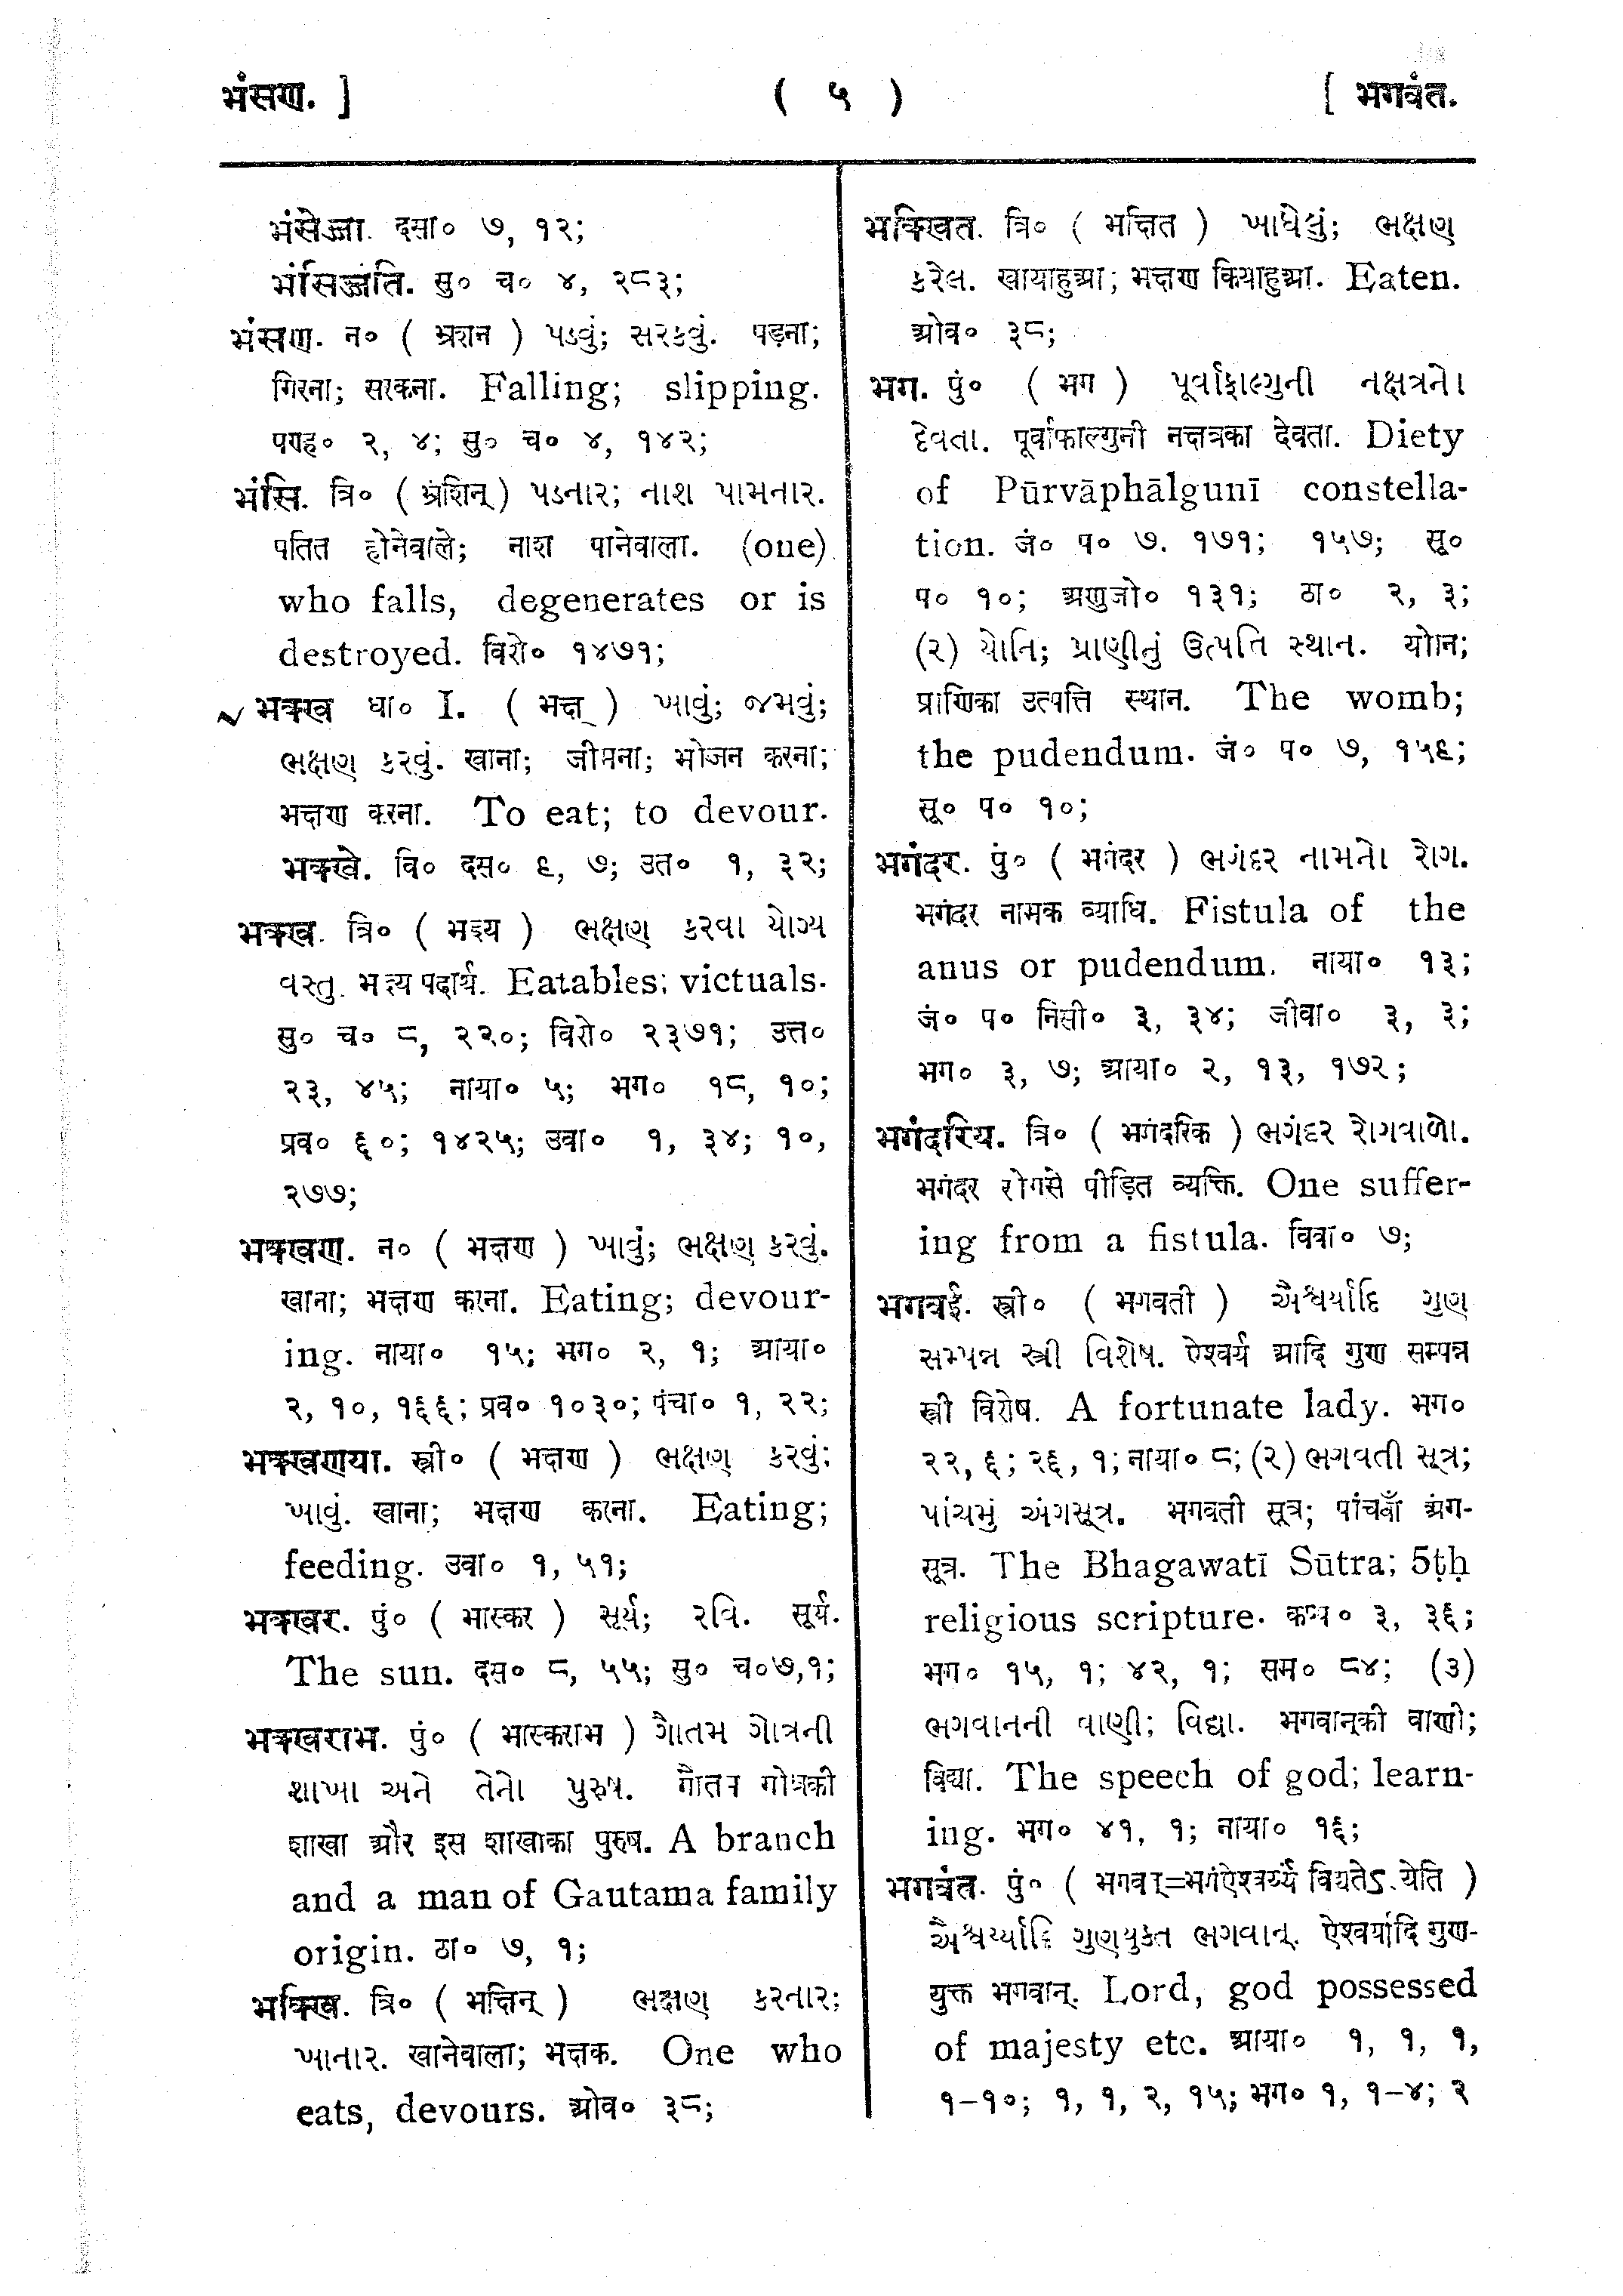 भंसण. ]
( ५ )
[ भगवंत.
भंसेज्जा. दसा० ७, १२;
भंसिज्जंति. सु० च० ४, २८३;
भंसण. न० ( भ्रंशन ) પડવું; સરકવું. पड़ना;
गिरना; सरकना. Falling; slipping.
पण्ह० २, ४; सु० च० ४, १४२;
भंसि. त्रि० ( भ्रंशिन् ) પડનાર; નાશ પામનાર.
पतित होनेवाले; नाश पानेवाला. (one)
who falls, degenerates or is
destroyed. विशे० १४७१;
भक्ख धा० I. ( भक्ष् ) ખાવું; જમવું;
ભક્ષણ કરવું. खाना; जीमना; भोजन करना;
भक्षण करना. To eat; to devour.
भक्खे. वि० दस० ६, ७; उत० १, ३२;
भक्ख. त्रि० ( भक्ष्य ) ભક્ષણ કરવા યોગ્ય
વસ્તુ. भक्ष्य पदार्थ. Eatables; victuals.
सु० च० ८, २२०; विशे० २३७१; उत्त०
२३, ४५; नाया० ५; भग० १८, १०;
प्रव० ६०; १४२५; उवा० १, ३४; १०,
२७७;
भक्खण. न० ( भक्षण ) ખાવું; ભક્ષણ કરવું.
खाना; भक्षण करना. Eating; devour-
ing. नाया० १५; भग० २, १; आया०
२, १०, १६६; प्रव० १०३०; पंचा० १, २२;
भक्खणया. स्त्री० ( भक्षण ) ભક્ષણ કરવું;
ખાવું. खाना; भक्षण करना. Eating;
feeding. उवा० १, ५१;
भक्खर. पुं० ( भास्कर ) સૂર્ય; રવિ. सूर्य.
The sun. दस० ८, ५५; सु० च०७,१;
भक्खराभ. पुं० ( भास्कराभ ) ગૌતમ ગોત્રની
શાખા અને તેનો પુરુષ. गौतम गोत्रकी
शाखा और इस शाखाका पुरुष. A branch
and a man of Gautama family
origin. ठा० ७, १;
भक्खि. त्रि० ( भक्षिन् ) ભક્ષણ કરનાર;
ખાનાર. खानेवाला; भक्षक. One who
eats, devours. ओव० ३८;
भक्खित. त्रि० ( भक्षित ) ખાધેલું; ભક્ષણ
કરેલ. खायाहुआ; भक्षण कियाहुआ. Eaten.
ओव० ३८;
भग. पुं० ( भग ) પૂર્વાફાલ્ગુની નક્ષત્રનો
દેવતા. पूर्वाफाल्गुनी नक्षत्रका देवता. Diety
of Pūrvāphālgunī constella-
tion. जं० प० ७. १७१; १५७; सू०
प० १०; अणुजो० १३१; ठा० २, ३;
(૨) યોનિ; પ્રાણીનું ઉત્પતિ સ્થાન. योनि;
प्राणिका उत्पत्ति स्थान. The womb;
the pudendum. जं० प० ७, १५६;
सू० प० १०;
भगंदर. पुं० ( भगंदर ) ભગંદર નામનો રોગ.
भगंदर नामक व्याधि. Fistula of the
anus or pudendum. नाया० १३;
जं० प० निसी० ३, ३४; जीवा० ३, ३;
भग० ३, ७; आया० २, १३, १७२;
भगंदरिय. त्रि० ( भगंदरिक ) ભગંદર રોગવાળો.
भगंदर रोगसे पीड़ित व्यक्ति. One suffer-
ing from a fistula. विवा० ७;
भगवई. स्त्री० ( भगवती ) ઐશ્વર્યાદિ ગુણ
સમ્પન્ન સ્ત્રી વિશેષ. ऐश्वर्य आदि गुण सम्पन्न
स्त्री विशेष. A fortunate lady. भग०
२२, ६; २६, १; नाया० ८; (૨) ભગવતી સૂત્ર;
પાંચમું અંગસૂત્ર. भगवती सूत्र; पांचवाँ अंग-
सूत्र. The Bhagawatī Sūtra; 5ṭḥ
religious scripture. कप्प० ३, ३६;
भग० १५, १; ४२, १; सम० ८४; (૩)
ભગવાનની વાણી; વિદ્યા. भगवान्‌की वाणी;
विद्या. The speech of god; learn-
ing. भग० ४१, १; नाया० १६;
भगवंत. पुं० ( भगवत्=भगंऐश्वर्य्यं विद्यतेऽस्येति )
ઐશ્વર્ય્યાદિ ગુણયુક્ત ભગવાન્. ऐश्वर्यादि गुण-
युक्त भगवान्. Lord, god possessed
of majesty etc. आया० १, १, १,
१–१०; १, १, २, १५; भग० १, १–४; २